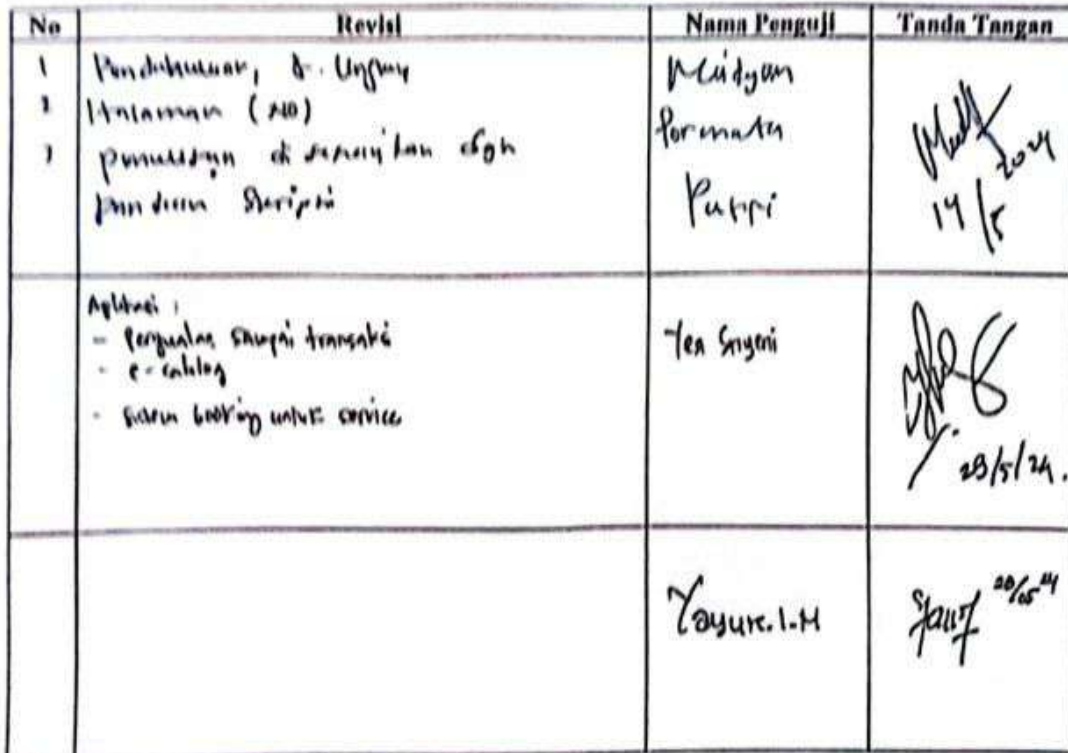 No Revisi Nama Penguji Tanda Tangan
1 Pendahuluan,
2 Halaman (NO)
3 penulisan di sesuaikan dgn
panduan Skripsi
Midyan
Permata
Putri
2024
14/5
Aplikasi :
- penjualan sampai transaksi
- e-catalog
- sistem booking untuk service
Yea Sriyeni
29/5/24.
Yayuk.I.M